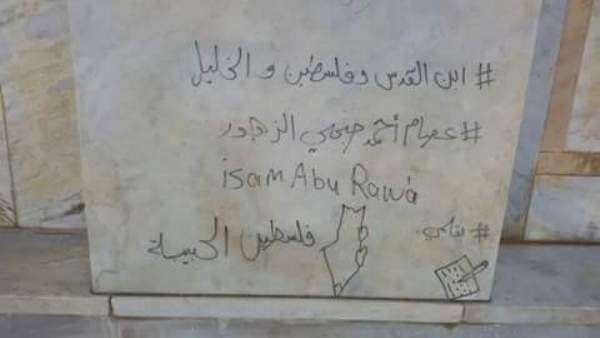 # ابن القدس وفلسطين و الخليل
# عصام أحمد صبحي الزهور
isam Abu Rawa
# بقلمي
فلسطين الحبيبة